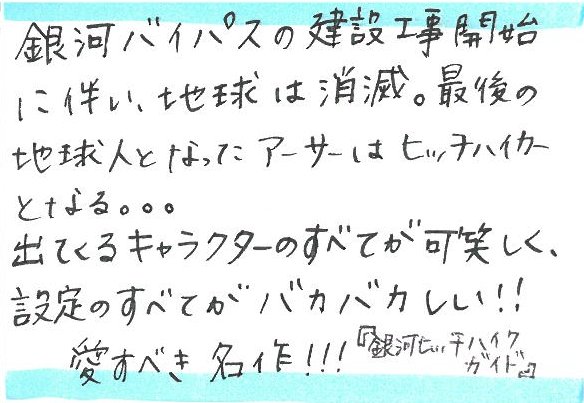 銀河バイパスの建設工事開始
に伴い、地球は消滅。最後の
地球人となったアーサーはヒッチハイカー
となる。。。
出てくるキャラクターのすべてが可笑しく、
設定のすべてがバカバカしい!!
愛すべき名作!!!
『銀河ヒッチハイク
ガイド』